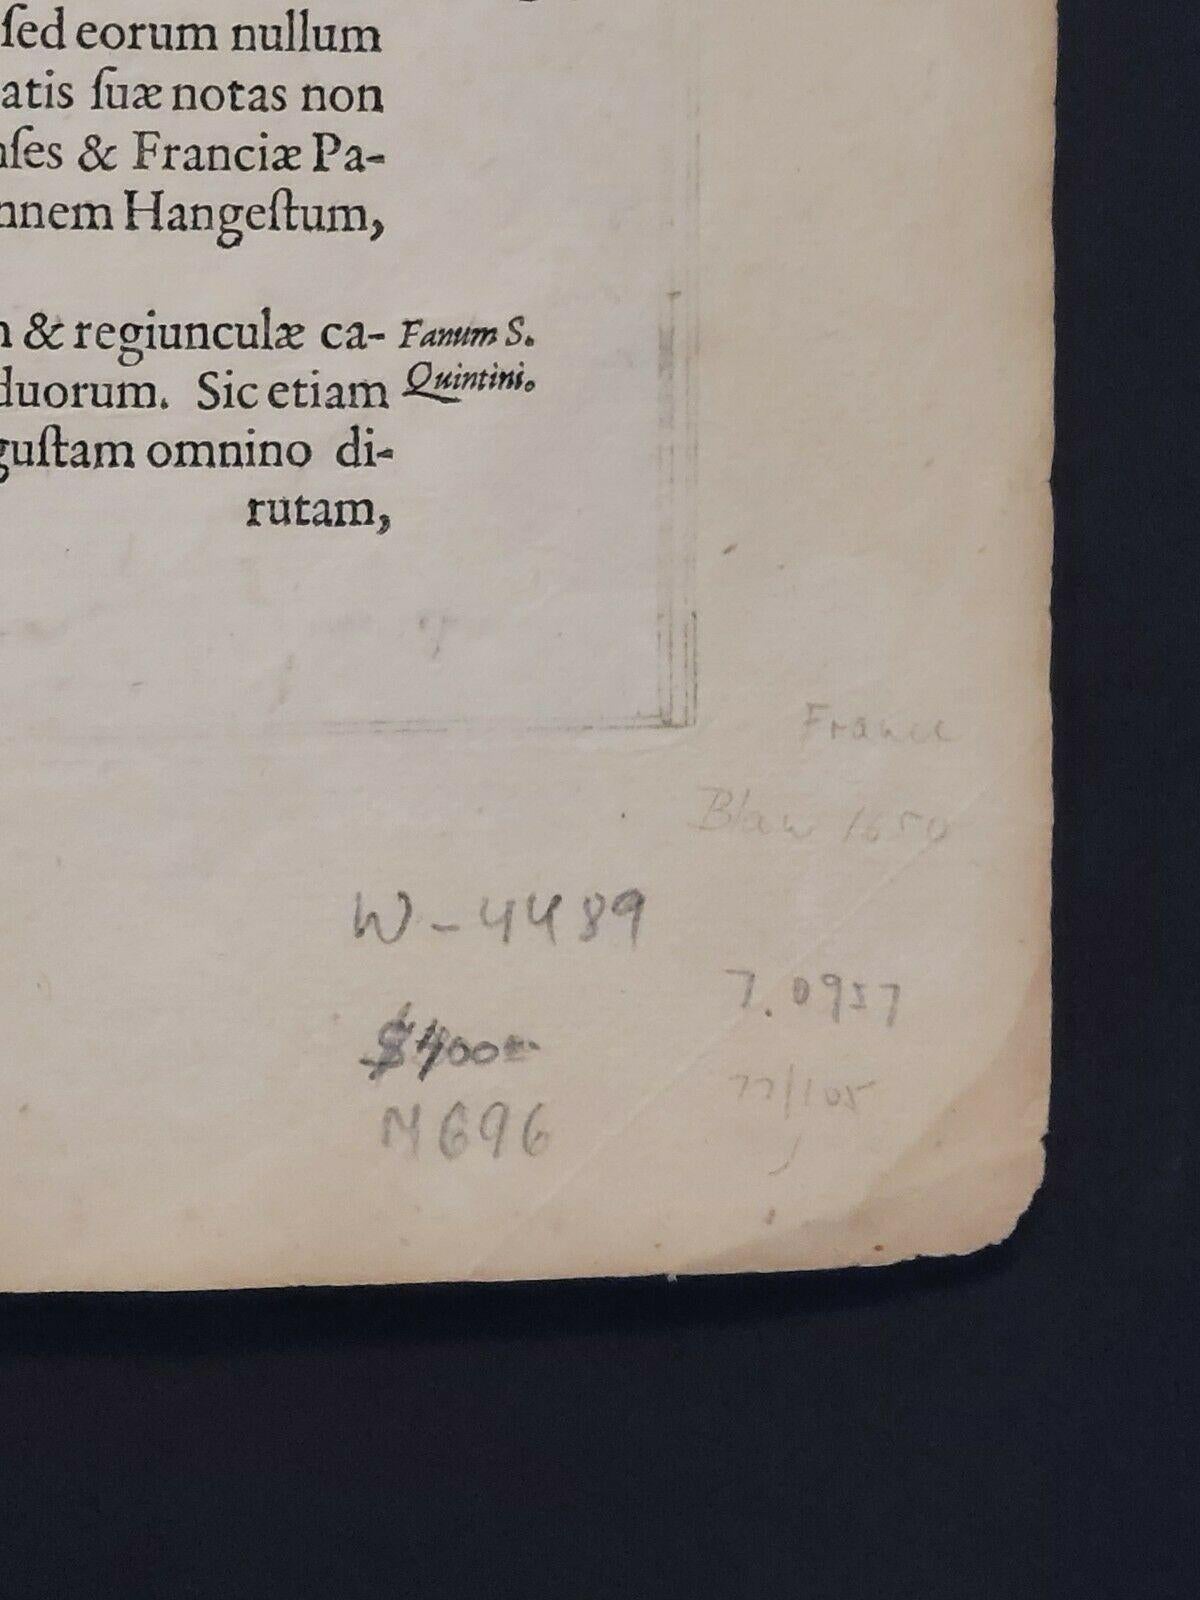 ſed eorum nullum
atis ſuæ notas non
nſes & Franciæ Pa-
nnem Hangeſtum,
n & regiunculæ ca- Fanum S.
duorum. Sic etiam Quintini.
guſtam omnino di-
rutam,
France
Blaw 1650
W-4489
7.0957
$400
77/105
M696